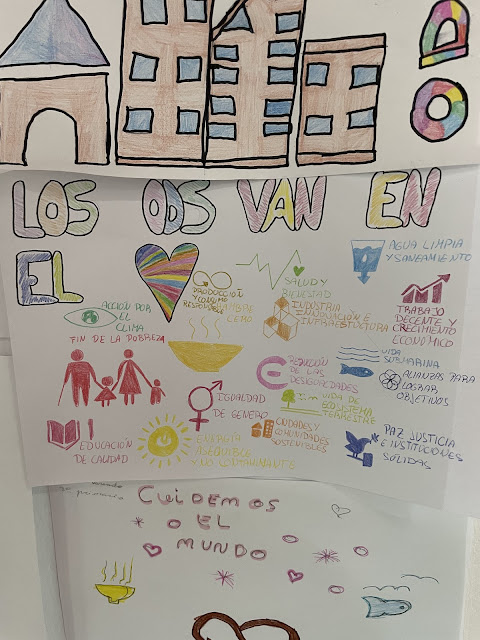 LOS ODS VAN EN
EL
AGUA LIMPIA
Y SANEAMIENTO
SALUD Y
BIENESTAR
PRODUCCIÓN
Y CONSUMO
RESPONSABLE
HAMBRE
CERO
ACCIÓN POR
EL
CLIMA
INDUSTRIA
INNOVACIÓN E
INFRAESTRUCTURA
TRABAJO
DECENTE Y
CRECIMIENTO
ECONOMICO
FIN DE LA POBREZA
REDUCCIÓN
DE LAS
DESIGUALDADES
VIDA
SUBMARINA
ALIANZAS PARA
LOGRAR
OBJETIVOS
IGUALDAD
DE GENERO
VIDA DE
ECOSISTEMA
TERRESTRE
EDUCACIÓN
DE CALIDAD
ENERGÍA
ASEQUIBLE
Y NO CONTAMINANTE
CIUDADES Y
COMUNIDADES
SOSTENIBLES
PAZ JUSTICIA
E INSTITUCIONES
SÓLIDAS
CUIDEMOS
EL
MUNDO